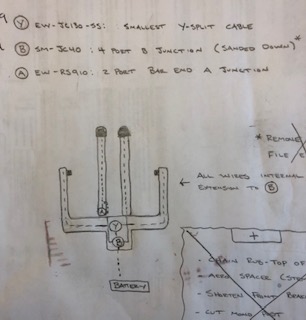 Y EW-JC130-SS: SMALLEST Y-SPLIT CABLE
B SM-JC40: 4 PORT B JUNCTION (SANDED DOWN)*
A EW-RS910: 2 PORT BAR END A JUNCTION
* REMOVE
FILE
ALL WIRES INTERNAL
EXTENSION TO B
A
Y
B
BATTERY
+
- CHAIN RUB-TOP OF
- AERO SPACER
- SHORTEN FRONT
- CUT MONO POST